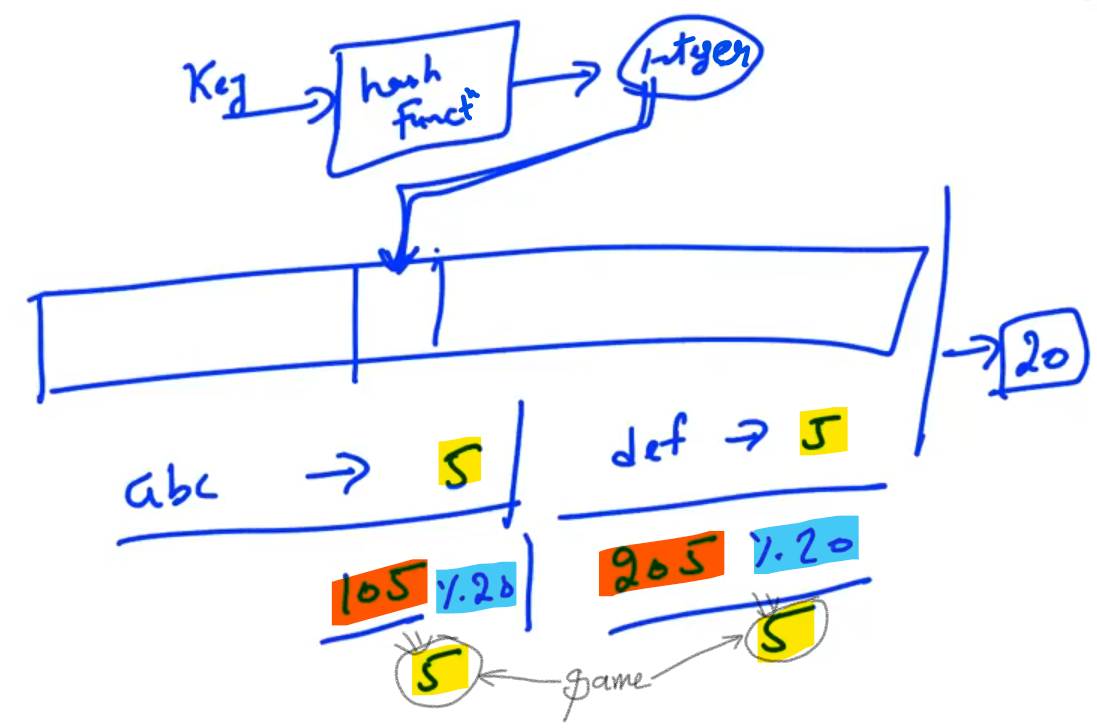 Key
hash
functⁿ
integer
20
abc → 5
def → 5
105 %20
205 %20
5
5
same